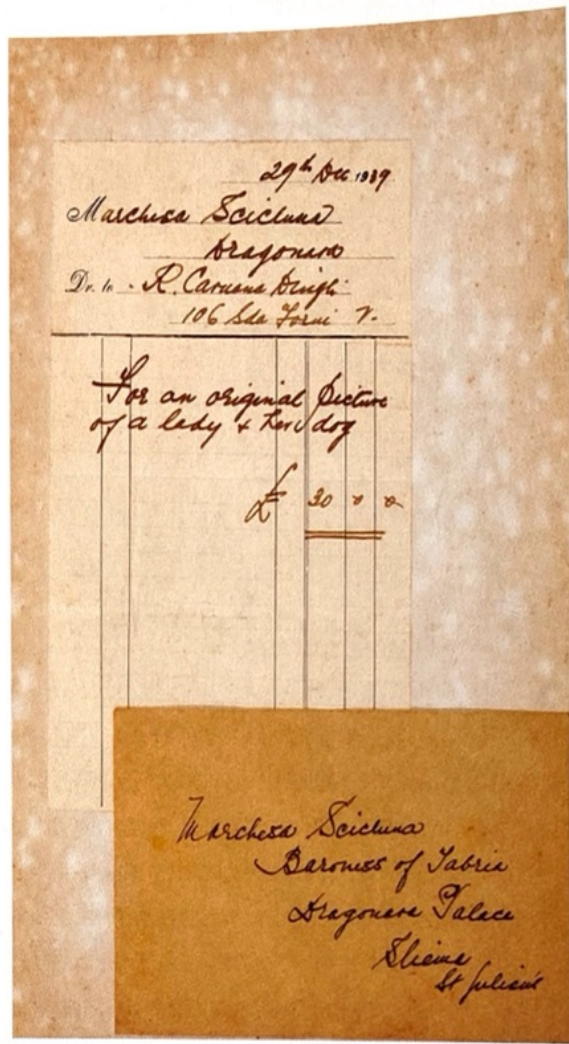 29th Dec. 1939
Marchesa Scicluna
Dragonara
Dr. to - R. Caruana Dingli
106 Sda Forni V.
For an original picture
of a lady & her dog
£ 30 " "
Marchesa Scicluna
Baroness of Tabria
Dragonara Palace
Sliema
St Julian's